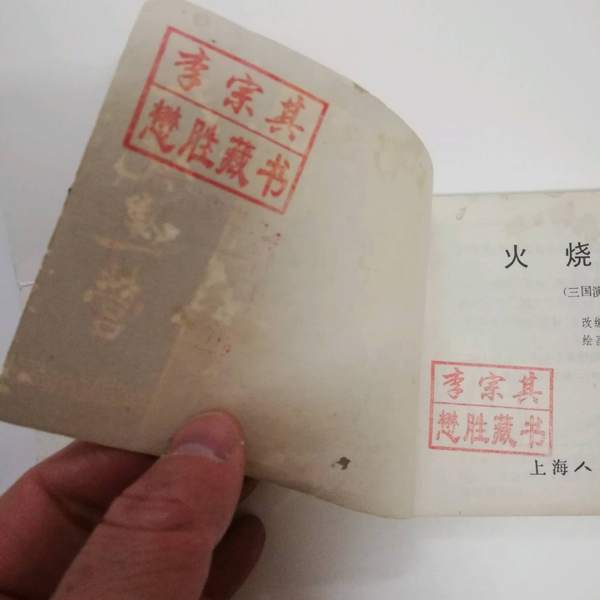 李宗其
懋胜藏书
火烧
(三国演
改编
绘画
李宗其
懋胜藏书
上海人